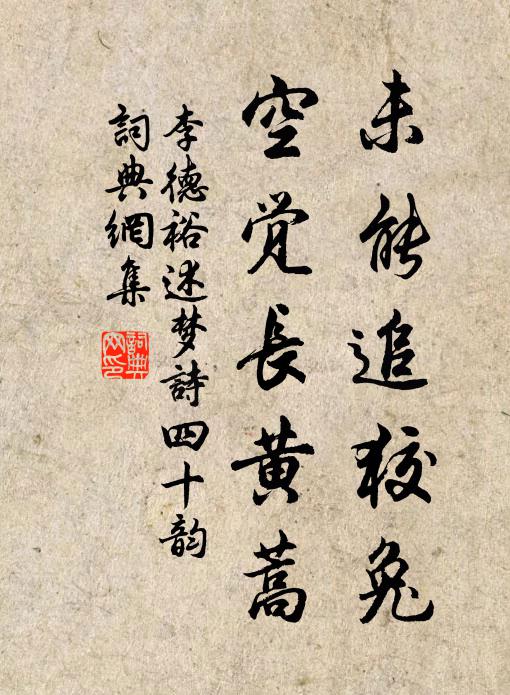 未能追狡兔
空覚長黄蒿
李德裕述梦詩四十韵
詞典網集
詞典
网印